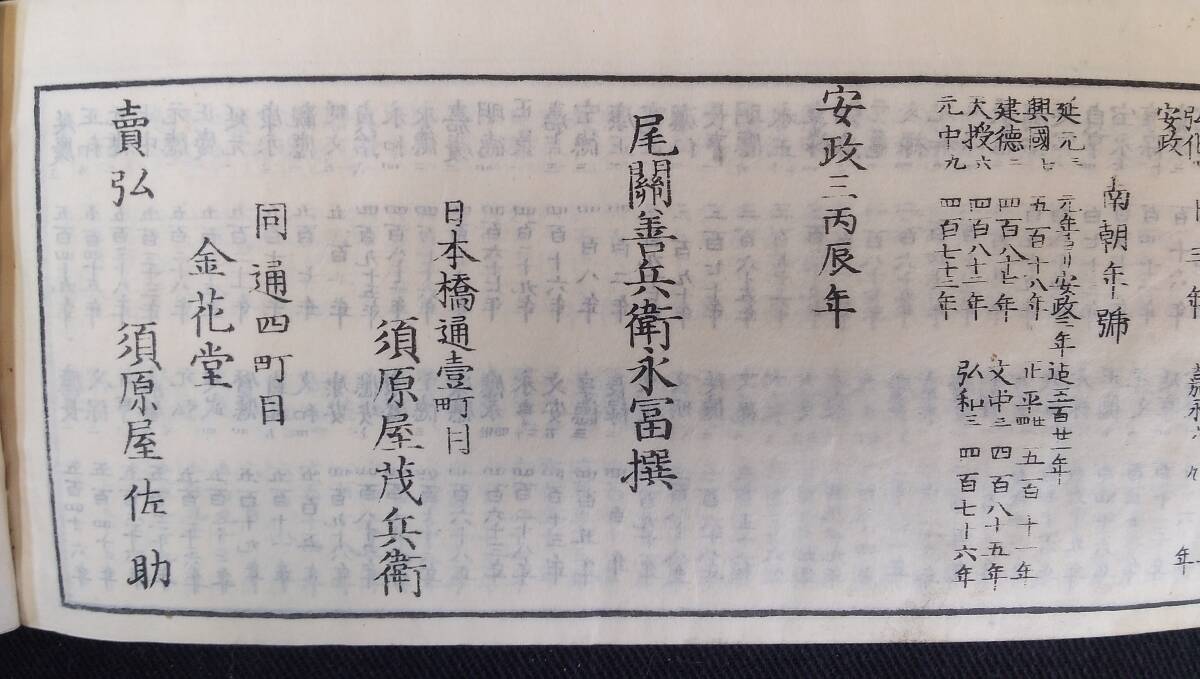 安政
南朝年號
延元三 元年ヨリ安政三年迠五百廿一年
興國七 五百十八年 正平廿四 五百十一年
建德二 四百八十七年 文中三 四百八十五年
天授六 四百八十一年 弘和三 四百七十六年
元中九 四百七十三年
安政三丙辰年
尾關善兵衛永冨撰
日本橋通壹町目
須原屋茂兵衛
同通四町目
金花堂
賣弘 須原屋佐助